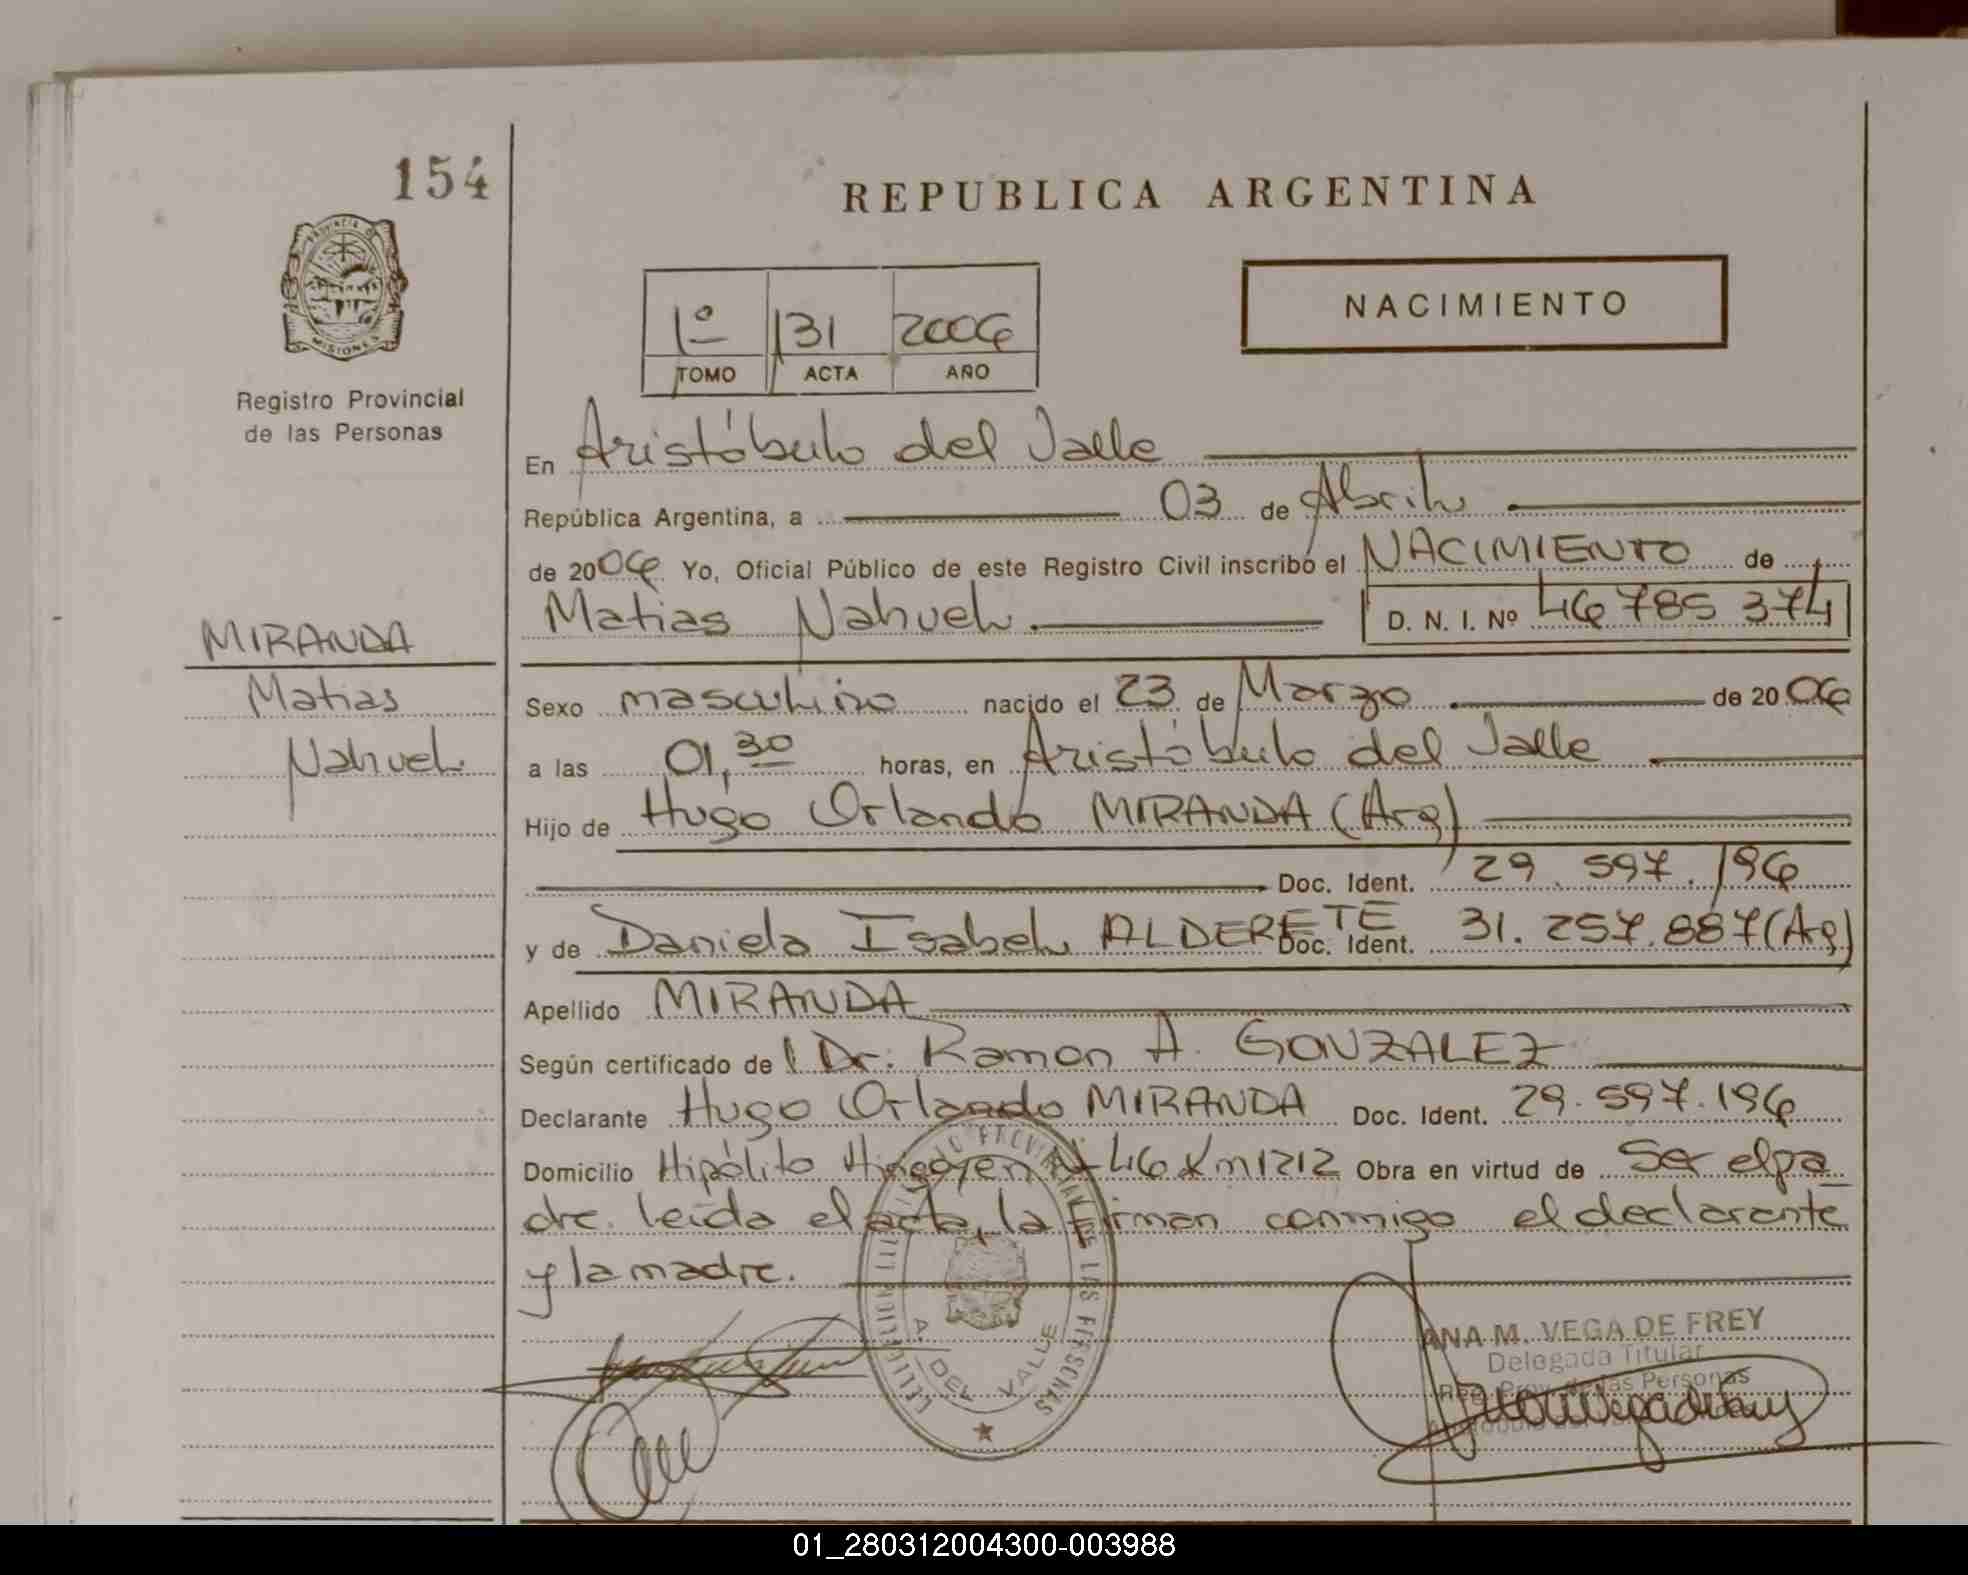 154
REPUBLICA ARGENTINA
PROVINCIA D
MISIONES
Registro Provincial
de las Personas
NACIMIENTO
1º 131 2006
TOMO ACTA AÑO
En Aristóbulo del Valle
República Argentina, a 03 de Abril
de 2006 Yo, Oficial Público de este Registro Civil inscribo el NACIMIENTO de
Matias Nahuel D. N. I. Nº 46 785 374
MIRANDA
Matias
Nahuel
Sexo masculino nacido el 23 de Marzo de 2006
a las 01,30 horas, en Aristóbulo del Valle
Hijo de Hugo Orlando MIRANDA (Arg)
Doc. Ident. 29.597.196
y de Daniela Isabel ALDERETE Doc. Ident. 31.257.887 (Arg)
Apellido MIRANDA
Según certificado de l Dr. Ramon A. GONZALEZ
Declarante Hugo Orlando MIRANDA Doc. Ident. 29.597.196
Domicilio Hipólito Hirigoyen 46 Km 1212 Obra en virtud de Ser el pa
dre. leída el acta, la firman conmigo el declarante
y la madre.
A. DEL VALLE
ANA M. VEGA DE FREY
Delegada Titular
Reg. Prov. de las Personas
01_280312004300-003988